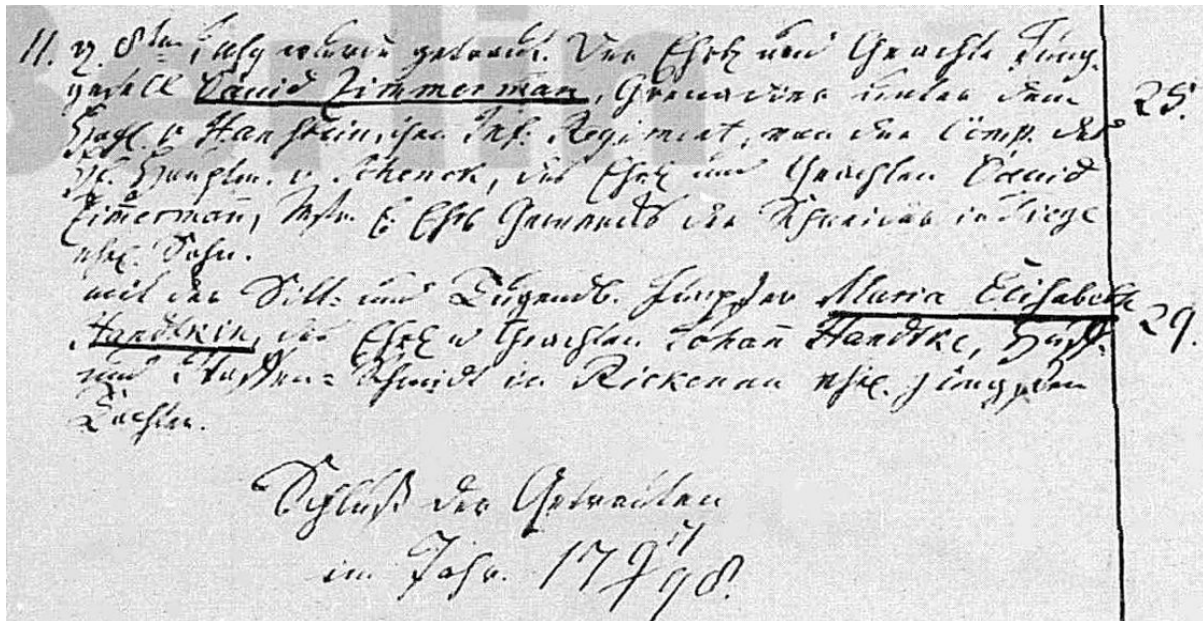 11. d. 8ten July wurde getraut. Der Ehrb und Geachte Jung-
gesell David Zimmerman, Grenadier unter dem 25.
Hochl. v Hanstein,schen Inf. Regiment, von der Comp. des
H. Hauptm. v. Schenck, des Ehrb und Geachten David
Zimmerman, Mstr. E. Ehrb Gewercks der Schneider in Tiege
ehel. Sohn.
mit der Sitt- und Tugendb. Jungfer Maria Elisabeth
Handtkin, des Ehrb u Geachten Johann Handtke, Huff- 29.
und Waffen-Schmidt in Rickenau ehel. jüngsten
Tochter.
Schluß der Getrauten
im Jahr. 1798.
Berlin